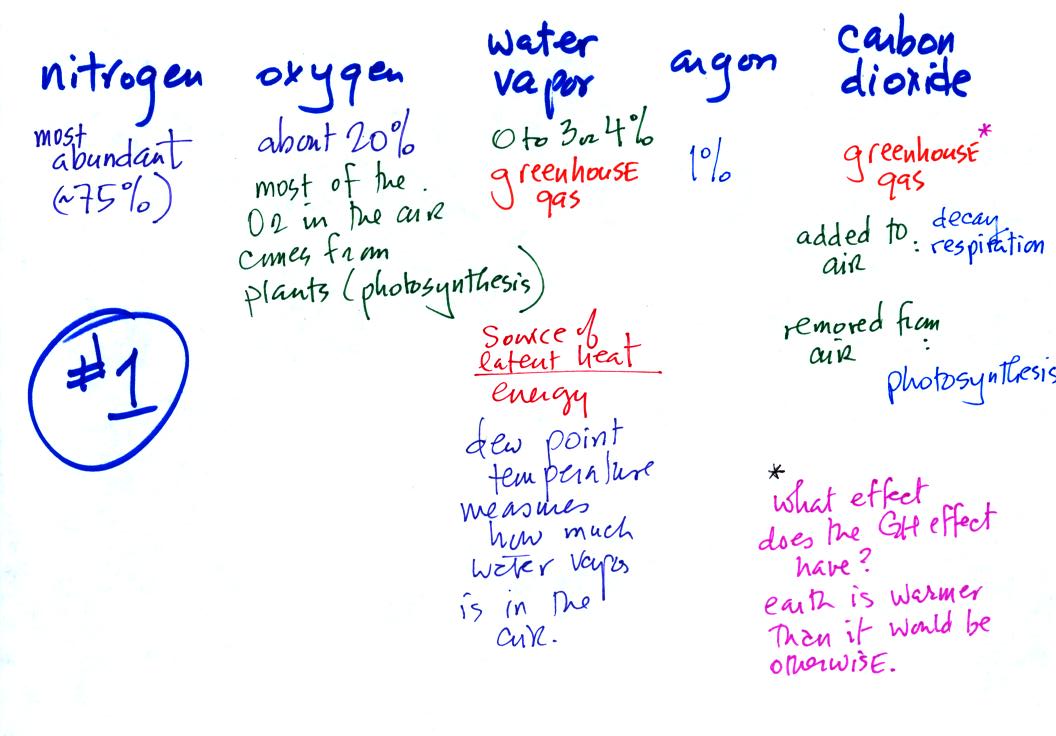 nitrogen
most
abundant
(~75%)
#1
oxygen
about 20%
most of the
O2 in the air
comes from
plants (photosynthesis)
water
vapor
0 to 3 or 4%
greenhouse
gas
Source of
latent heat
energy
dew point
temperature
measures
how much
water vapor
is in the
air.
argon
1%
carbon
dioxide
greenhouse*
gas
added to : decay
air respiration
removed from
air :
photosynthesis
*
what effect
does the GH effect
have?
earth is warmer
than it would be
otherwise.